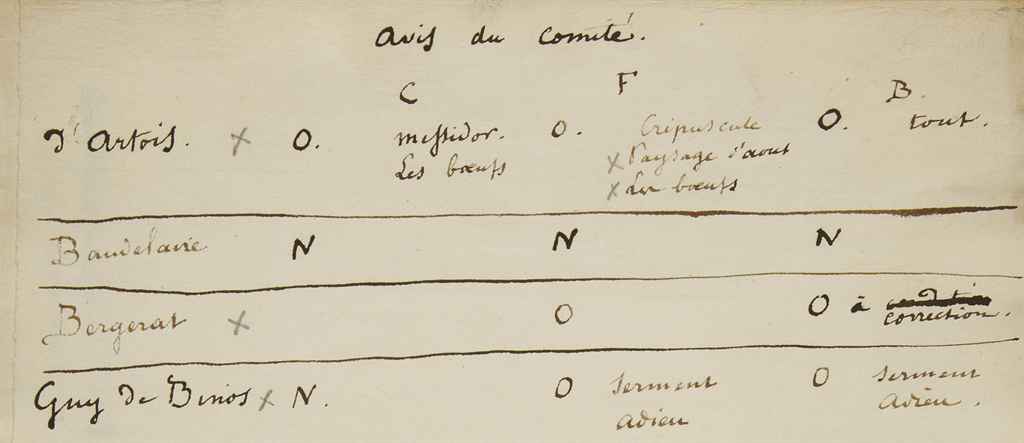 Avis du Comité.
C F B.
d'Artois. x O. messidor. O. Crépuscule O. tout.
Les bœufs x Paysage d'aout
x Les bœufs
Baudelaire N N N
Bergerat x O O à condition
correction.
Guy de Binos x N. O Serment O Serment
adieu adieu.